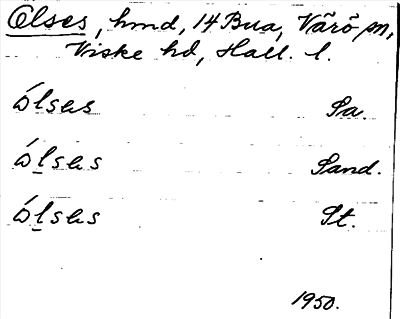 Olses, hmd, 14 Bua, Värö sn,
Viske hd, Hall. l.
ólsəs Sa.
ól̠səs Sand.
ól̠səs St.
1950.